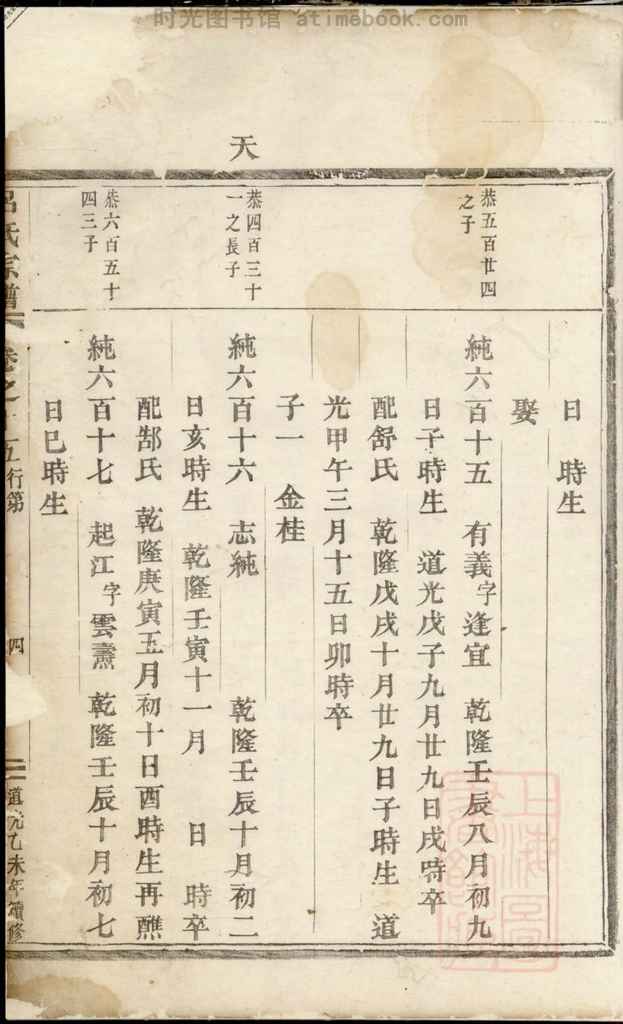 时光图书馆 atimebook.com
天
日　時生
娶
恭五百廿四
之子
純六百十五　有義字逢宜　乾隆壬辰八月初九
日子時生　道光戊子九月廿九日戌時卒
配舒氏　乾隆戊戌十月廿九日子時生　道
光甲午三月十五日卯時卒
子一　金桂
恭四百三十
一之長子
純六百十六　志純　乾隆壬辰十月初二
日亥時生　乾隆壬寅十一月　日　時卒
配郜氏　乾隆庚寅五月初十日酉時生再醮
恭六百五十
四三子
純六百十七　起江字雲燾　乾隆壬辰十月初七
日巳時生
呂氏宗譜　卷之　五行第　四　道光乙未年續修
上海圖